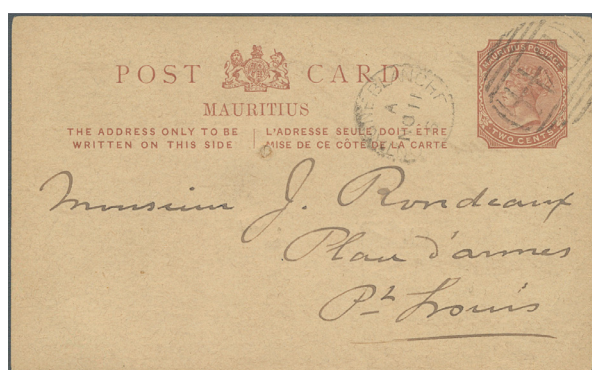 POST CARD
MAURITIUS
THE ADDRESS ONLY TO BE
WRITTEN ON THIS SIDE
L'ADRESSE SEULE DOIT ÊTRE
MISE DE CE CÔTÉ DE LA CARTE
MAURITIUS POSTAGE
TWO CENTS
A
NO 11
Monsieur J. Rondeaux
Place d'armes
Pt Louis